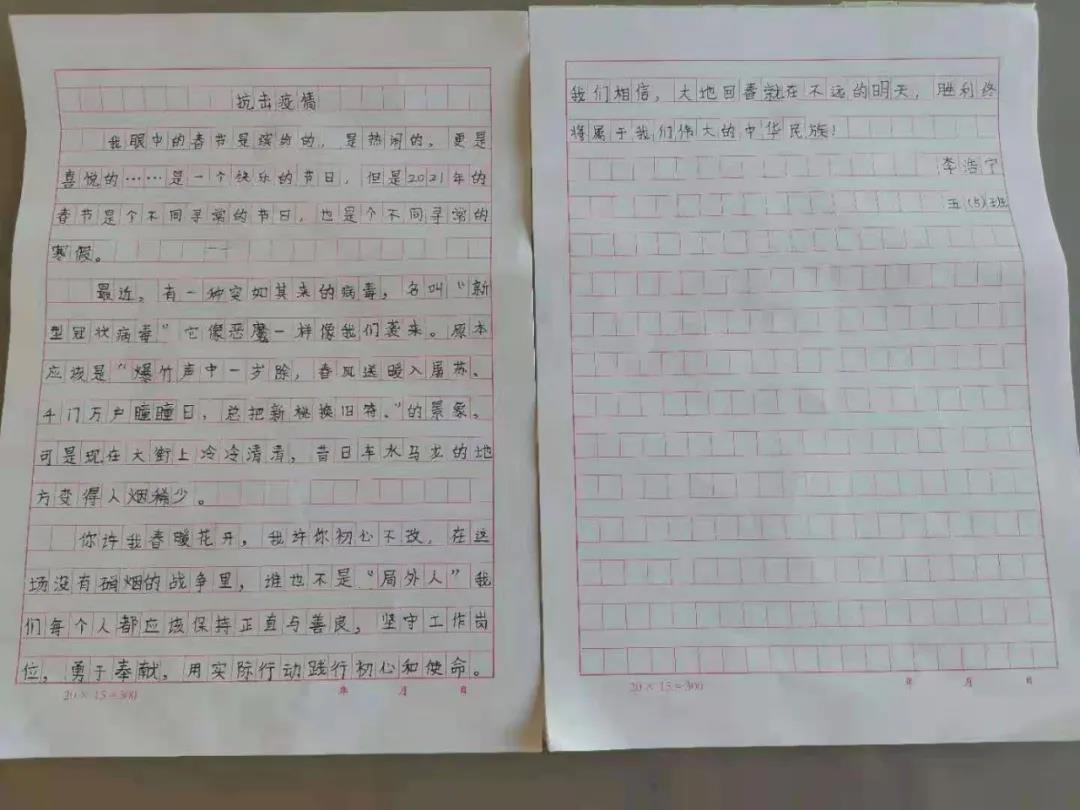 抗击疫情
我眼中的春节是缤纷的，是热闹的，更是
喜悦的……是一个快乐的节日，但是2021年的
春节是个不同寻常的节日，也是个不同寻常的
寒假。
最近，有一种突如其来的病毒，名叫“新
型冠状病毒”它像恶魔一样像我们袭来。原本
应该是“爆竹声中一岁除，春风送暖入屠苏、
千门万户瞳瞳日，总把新桃换旧符。”的景象。
可是现在大街上冷冷清清，昔日车水马龙的地
方变得人烟稀少。
你许我春暖花开，我许你初心不改，在这
场没有硝烟的战争里，谁也不是“局外人”我
们每个人都应该保持正直与善良，坚守工作岗
位，勇于奉献，用实际行动践行初心和使命。
20×15=300 年 月 日
我们相信，大地回春就在不远的明天，胜利终
将属于我们伟大的中华民族！
李浩宁
五（5）班
20×15=300 年 月 日